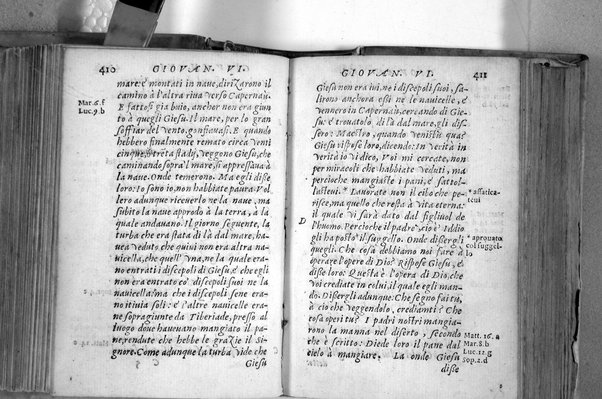 410
GIOVAN. VI.
mare: e montati in naue, dirizarono il
camino à l'altra riua verso Capernau.
Mat. 6. f
E fattosi gia buio, anchor non era giun
Luc. 9. b
to à quegli Giesu. Il mare, per lo gran
soffiar del vento, gonfiauasi. E quando
hebbero finalmente remato circa venti
cinque, o trẽta stadij, veggono Giesu, che
caminando sopra'l mare, si appressaua à
la naue. Onde temerono. Ma egli disse
loro: Io sono io, non habbiate paura. Vol
lero adunque riceuerlo ne la naue, ma
subito la naue approdò à la terra, à la
quale andauano. Il giorno seguente, la
turba che era stata di là dal mare, ha-
uea veduto, che quiui non era altra na-
uicella, che quell' vna, ne la quale era-
no entrati i discepoli di Giesu, e che egli
non era entrato co' discepoli suoi ne la
nauicella: ma che i discepoli sene era-
no itiuia soli: e l'altre nauicelle era-
no sopragiunte da Tiberiade, presso al
luogo doue haueuano mangiato il pa-
ne, rendute che hebbe le gratie il Si-
gnore. Come adunque la turba vide che
Giesu
GIOVAN. VI.
411
Giesu non era iui, ne i discepoli suoi, sa-
lirono anchora essi ne le nauicelle, e
vennero in Capernau, cercando di Gie-
su: e trouatolo di là dal mare, gli dis-
sero: Maestro, quando venisti quà?
Giesu rispose loro, dicendo: In verità in
verità io vi dico, Voi mi cercate, non
per miracoli che habbiate veduti, ma
percioche mangiaste i pani, e satol-
lasteui. * Lauorate non il cibo che pe-
* affatica-
teui
risce, ma quello che resta à vita eterna:
il quale vi sarà dato dal figliuol de
D
l'huomo. Percioche il padre, cio è Iddio
gli ha posto * il suggello. Onde dissergli
* aprouato
col suggel-
lo
quegli. Che cosa debbiamo noi fare à
operare l'opere di Dio? Rispose Giesu, e
disse loro: Questa è l'opera di Dio, che
voi crediate in colui, il quale egli man-
dò. Dissergli adunque: Che segno fai tu,
à ciò che veggendolo, crediamti? Che
cosa operi tu? I padri nostri mangia-
rono la manna nel diserto, secondo
Matt. 16. a
che è scritto: Diede loro il pane dal
Mar. 8. b
Luc. 12. g
cielo à mangiare. La onde Giesu
Sop. 2. d
disse